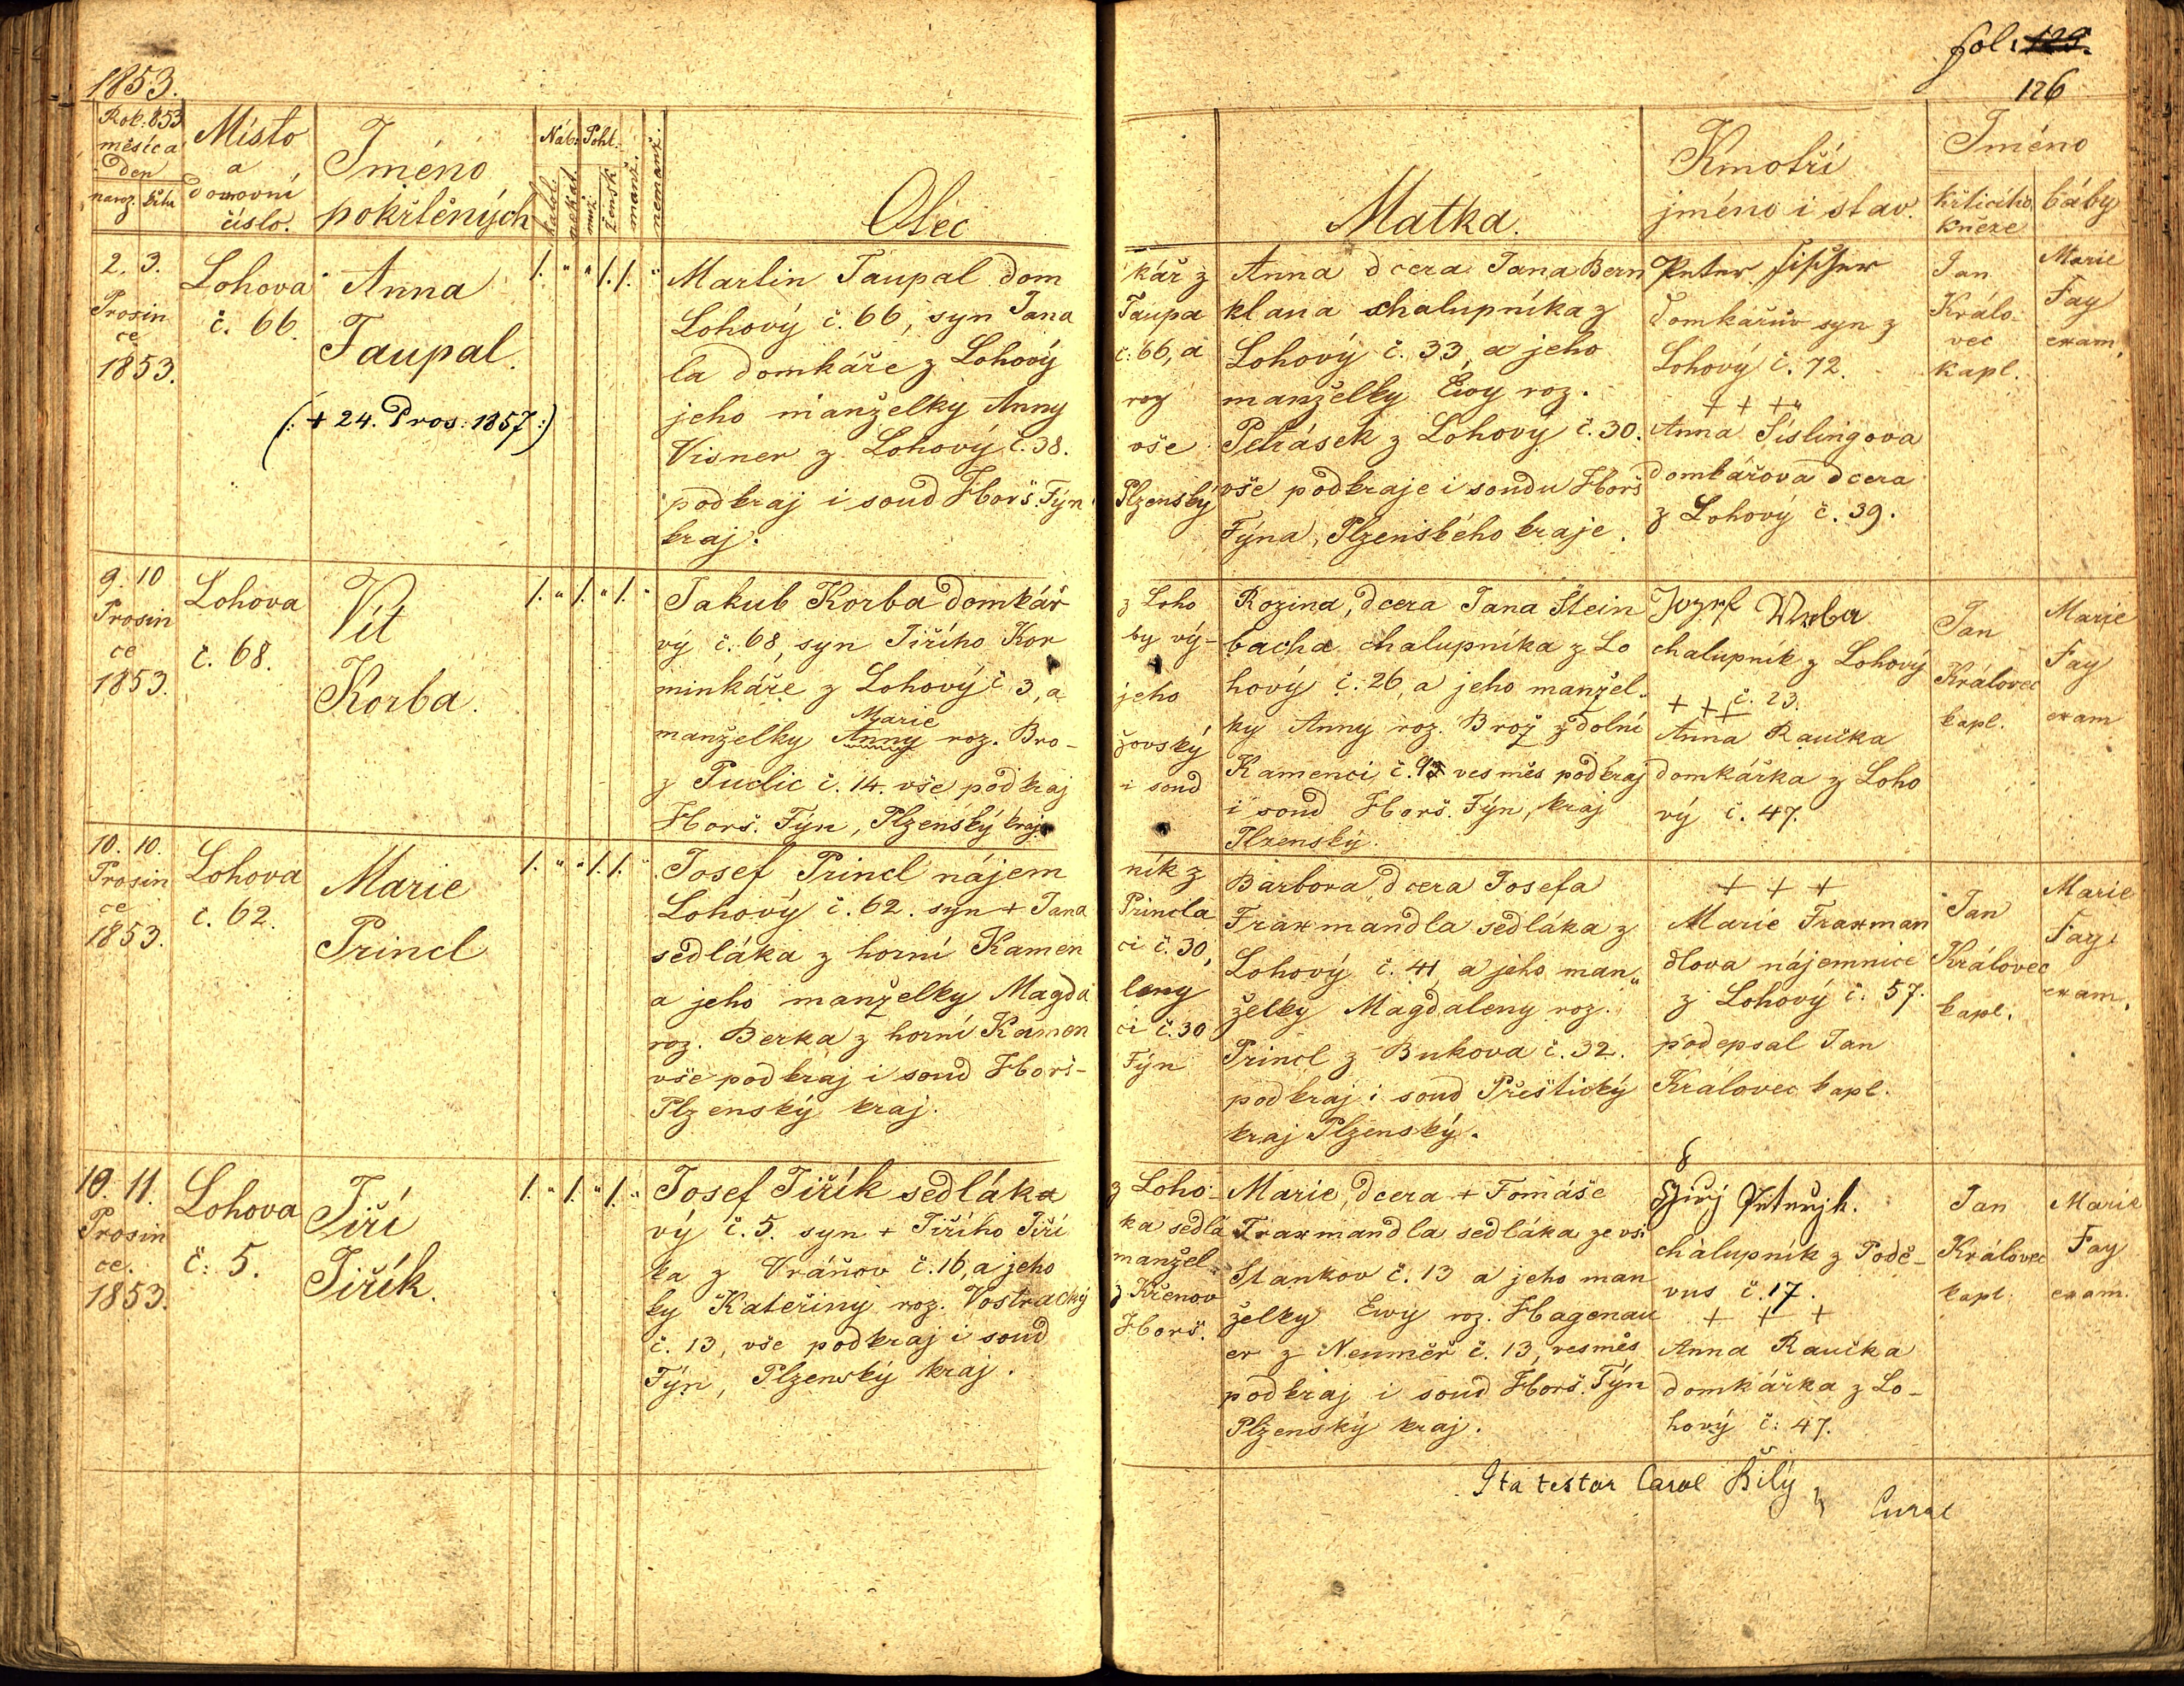 1853.
fol: 125.
126
Rok: 853
měsíca
den
naroz. křtu
Místo
a
domovní
číslo.
Jméno
pokřtěných
Náb: Pohl.
katol.
nekat.
muž.
žensk.
manž.
nemanž.
Otec
Matka.
Kmotři
jméno i stav.
Jméno
křticího
kněze
báby
2. 3.
Prosin
ce
1853.
Lohova
č. 66.
Anna
Taupal.
(: + 24. Pros: 1857 :)
1. " " 1. 1. "
Martin Taupal dom kář z
Lohový č. 66, syn Jana Taupa
la domkáře z Lohový č: 66, a
jeho manželky Anny roz
Visner z Lohový č. 38. vše
podkraj i soud Horš. Týn Plzenský
kraj.
Anna dcera Jana Bern
klana chalupníka z
Lohový č. 33, a jeho
manželky Ewy roz.
Petrásek z Lohový č. 30.
vše podkraje i soudu Horš
Týna, Plzenského kraje.
Peter Fischer
domkářův syn z
Lohový č. 72.
+ + +
Anna Šislingova
domkářova dcera
z Lohový č. 39.
Jan
Králo-
vec
kapl.
Marie
Fay
exam.
9. 10
Prosin
ce
1853.
Lohova
č. 68.
Vít
Korba.
1. " 1. " 1. "
Jakub Korba domkář z Loho
vý č. 68, syn Jiřího Kor by vý-
minkáře z Lohový č 3, a jeho
Marie
manželky Anny roz. Bro- žovský
z Puclic č. 14. vše podkraj i soud
Horš. Týn, Plzenský kraj.
Rozina, dcera Jana Štein
bacha chalupníka z Lo
hový č. 26, a jeho manžel-
ky Anny roz. Brož z dolní
Kamenci č. vesměs podkraj
i soud Horš. Týn, kraj
Plzenský.
Jozef Wrba
chalupník z Lohový
č. 23.
+ + +
Anna Raučka
domkářka z Loho
vý č. 47.
Jan
Královec
kapl.
Marie
Fay
exam
10. 10.
Prosin
ce
1853.
Lohova
č. 62.
Marie
Princl
1. " " 1. 1. "
Josef Princl nájem ník z
Lohový č. 62. syn + Jana Princla
sedláka z horní Kamen ci č. 30,
a jeho manželky Magda leny
roz. Berka z horní Kamen ci č. 30
vše podkraj i soud Horš- Týn
Plzenský kraj.
Barbora dcera Josefa
Fraxmandla sedláka z
Lohový č. 41, a jeho man„
želky Magdaleny roz.
Princl z Bukova č. 32.
podkraj i soud Přeštický
kraj Plzenský.
+ + +
Marie Fraxman
dlova nájemnice
z Lohový č. 57.
podepsal Jan
Královec kapl.
Jan
Královec
kapl.
Marie
Fay
exam.
10. 11.
Prosin
ce.
1853.
Lohova
č: 5.
Jiří
Jiřík.
1. " 1. " 1. "
Josef Jiřík sedláka z Loho-
vý č. 5. syn + Jiřího Jiří ka sedlá
ka z Vráňov č. 16, a jeho manžel-
ky Kateřiny roz. Vostracký z Křenov
č. 13, vše podkraj i soud Horš.
Týn, Plzenský kraj.
Marie, dcera + Tomáše
Fraxmandla sedláka ze vsi
Stankov č. 13 a jeho man
želky Ewy roz. Hagenau
er z Neuměř č. 13, vesměs
podkraj i soud Horš. Týn
Plzenský kraj.
chalupník z Podě-
vus č. 17.
+ + +
Anna Raučka
domkářka z Lo-
hový č: 47.
Jan
Královec
kapl.
Marie
Fay
exam.
Ita testor Carol Bílý
Curat